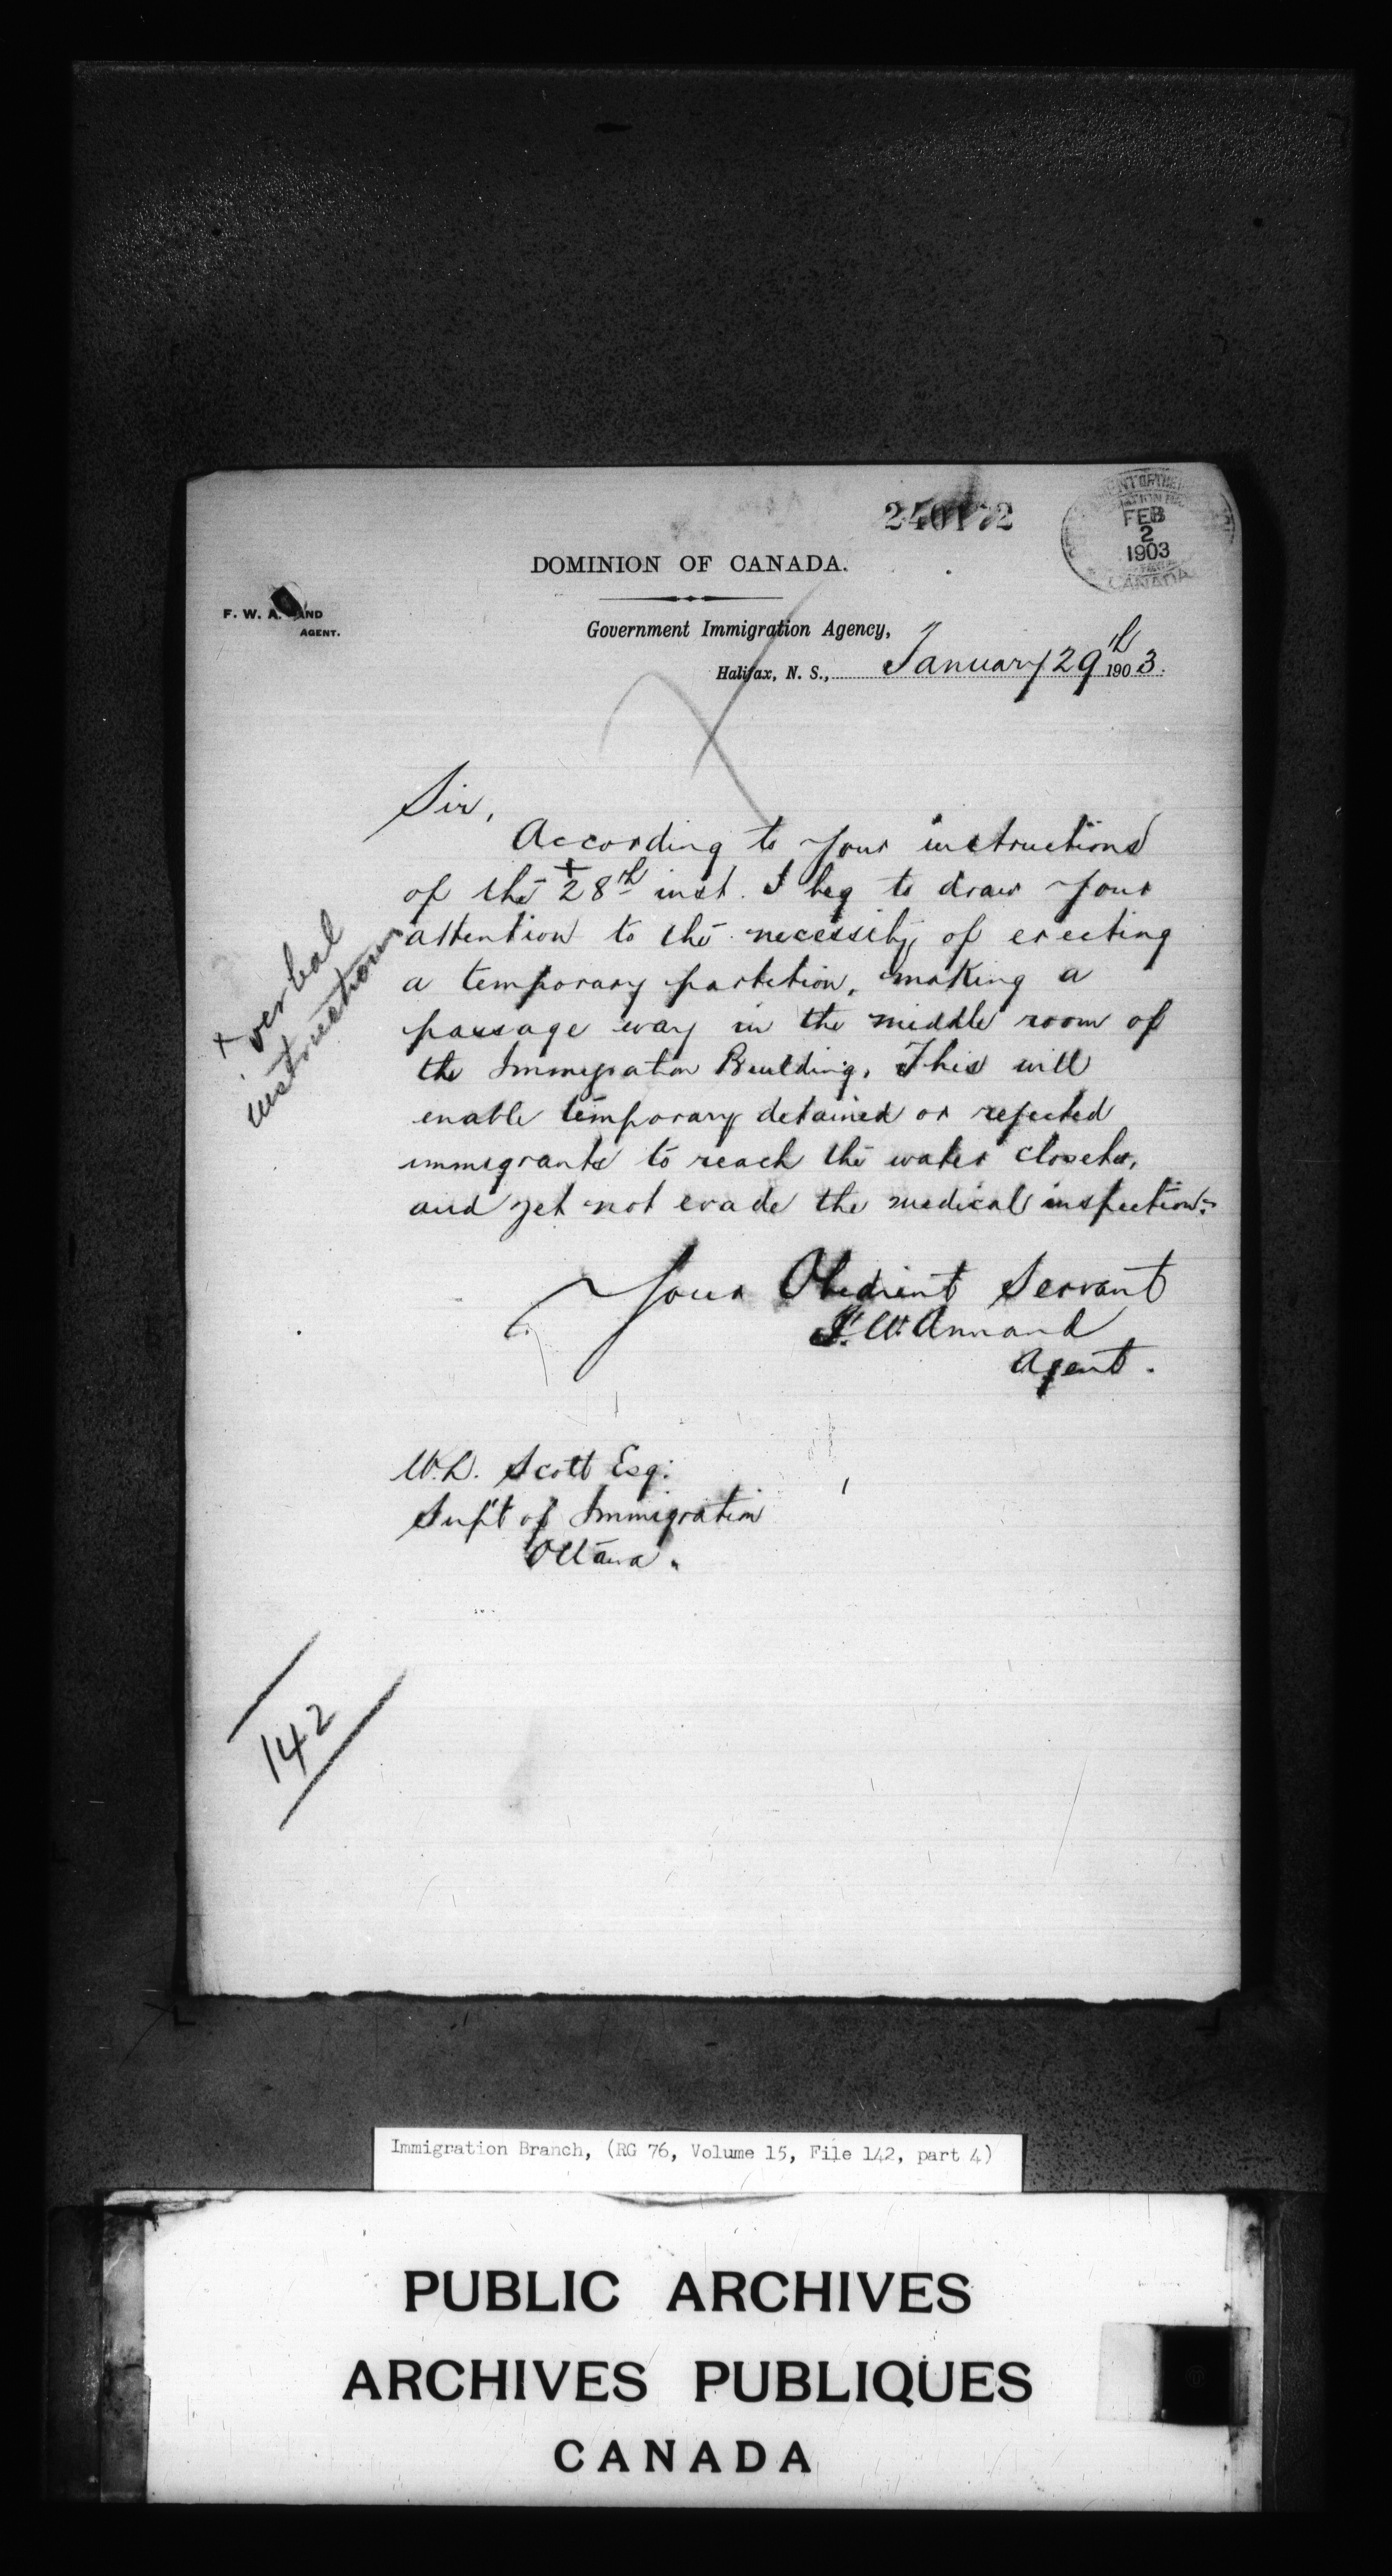 240172
FEB
2
1903
CANADA
DOMINION OF CANADA.
F. W. A
AND
AGENT.
Government Immigration Agency,
Halifax, N. S., January 29th 1903.
Sir,
According to your instructions
of the + 28th inst. I beg to draw your
attention to the necessity of erecting
a temporary partition, making a
passage way in the middle room of
the Immigration Building. This will
enable temporary detained or rejected
immigrants to reach the water closets,
and yet not evade the medical inspection.
+ verbal
instructions
Your Obedient Servant
F. W. Annand
Agent.
W.D. Scott Esq:
Supt of Immigration
Ottawa.
142
Immigration Branch, (RG 76, Volume 15, File 142, part 4)
PUBLIC ARCHIVES
ARCHIVES PUBLIQUES
CANADA